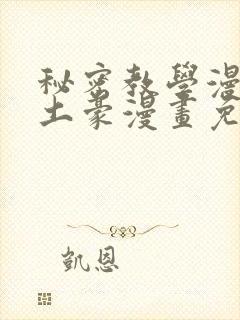 秘密教學漫
土豪漫畫免
凱恩